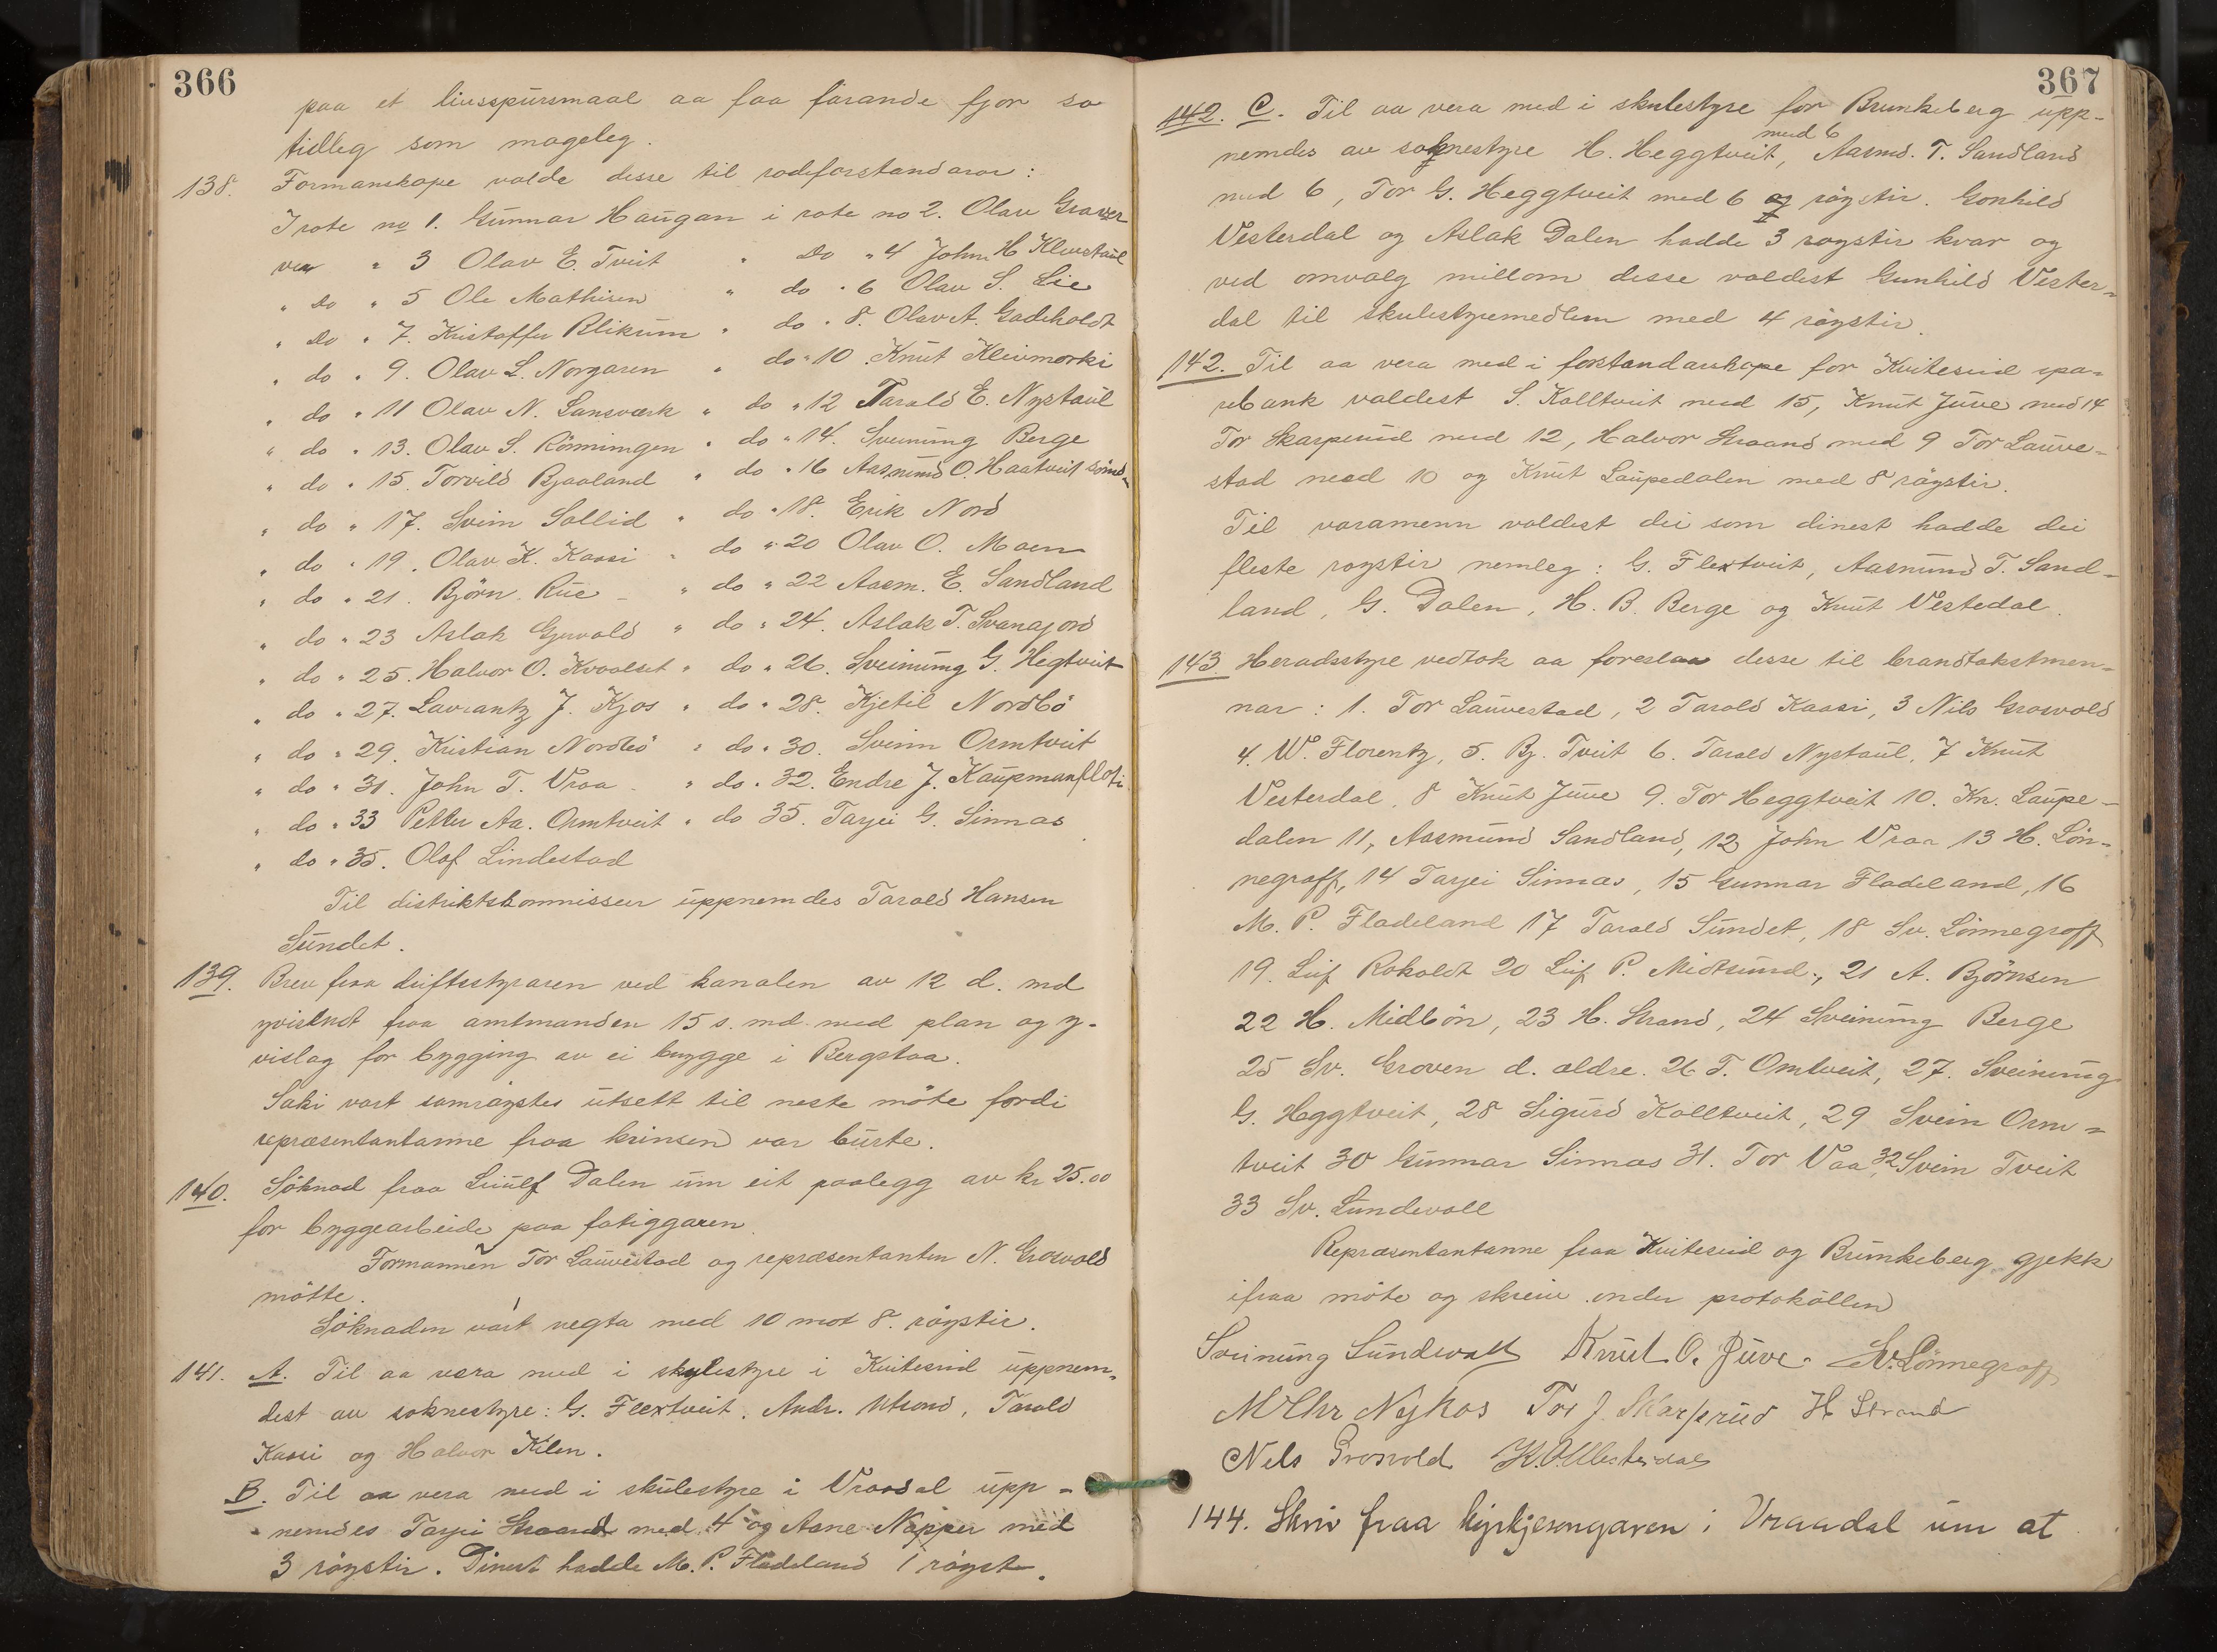 366
paa et livsspursmaal aa faa farande fjor so
tidleg som mogeleg.
138. Formanskape valde desse til rodeforstandarar:
I rote no 1. Gunnar Haugan i rote no 2. Olav Graver
" 3 Olav E. Tveit " do " 4 John H Klevstaul
" do " 5 Ole Mathisen " do " 6 Olav S. Lie
" do " 7. Kristoffer Blikum " do " 8. Olav A. Gadeholdt
" do " 9. Olav L. Norgaren " do " 10. Knut Kleivmorki
" do " 11 Olav N. Lansværk " do " 12 Tarald E. Nystaul
" do " 13. Olav S. Rönningen " do " 14. Sveinung Berge
" do " 15. Torvild Bjaaland " do " 16 Aasmund O. Haatveit
" do " 17. Svein Sollid " do " 18. Erik Nord
" do " 19. Olav K. Kaasi " do " 20 Olav O. Moen
" do " 21. Björn Rue " do " 22 Aasm. E. Sandland
" do " 23 Aslak Gjervald " do " 24. Aslak T. Svanajord
" do " 25. Halvor O. Kvaalset " do " 26. Sveinung G. Hegtveit
" do " 27. Lavrantz J. Kjos " do " 28. Kjetil Nordbö
" do " 29. Kristian Nordbö " do " 30. Sveinn Ormtveit
" do " 31. John T. Vraa " do " 32. Endre J. Kaupmanflot
" do " 33 Petter Aa. Ormtveit " do 35. Tarjei G. Sinnas
" do " 35. Olaf Lindestad
Til distriktskommissær uppnemdes Tarald Hansen
Sundet.
139. Brev fraa driftsstyraren ved kanalen av 12 d. md
yvisendt fraa amtmanden 15 s. md. med plan og y-
vislag for bygging av ei brygge i Bergstaa.
Saki vart samröystes utsett til neste möte fordi
repræsentantanne fraa krinsen var burte.
140. Söknad fraa Leiulf Dalen um eit paalegg av kr 25.00
for byggearbeide paa fatiggaren
Formannen Tor Lauvestad og repræsentanten N. Grosvold
mötte.
Söknaden vart negta med 10 mot 8. röystir.
141. A. Til aa vera med i skulestyre i Kviteseid uppnem-
dest av soknestyre: G. Flextveit. Andr. Utsond, Tarald
Kaasi og Halvor Kilen.
B. Til aa vera med i skulestyre i Vraadal upp-
nemdes Tarjei Straand med 4 og Aane Napper med
3 röystir. Dinest hadde M. P. Fladeland 1 röyst.
367
142. C. Til aa vera med i skulestyre for Brunkeberg upp-
nemdes av soknestyre H. Heggtveit med 6, Aasmd. T. Sandland
med 6, Tor G. Heggtveit med 6 röystir. Gonhild
Vesterdal og Aslak Dalen hadde 3 röystir kvar og
ved omvalg millom desse valdest Gunhild Vester-
dal til skulestyremedlem med 4 röystir.
142. Til aa vera med i forstandarskape for Kviteseid spa-
rebank valdest S. Kolltveit med 15, Knut Juve med 14
Tor Skarprud med 12, Halvor Straand med 9 Tor Lauve-
stad med 10 og Knut Laupedalen med 8 röystir.
Til varamenn valdest dei som dinest hadde dei
fleste röystir nemleg: G. Flextveit, Aasmund T. Sand-
land, G. Dalen, H. B. Berge og Knut Vestedal.
143. Heradsstyre vedtok aa foreslaa desse til brandtakstmen-
nar: 1. Tor Lauvestad, 2 Tarald Kaasi, 3 Nils Grosvold
4. W. Florentz, 5. Bj. Tveit 6. Tarald Nystaul, 7 Knut
Vesterdal, 8 Knut Juve 9. Tor Heggtveit 10. Kn. Laupe-
dalen 11, Aasmund Sandland, 12 John Vraa 13 H. Lön-
negroff, 14 Tarjei Sinnas, 15 Gunnar Fladeland, 16
M. P. Fladeland 17 Tarald Sundet, 18 Sv. Lönnegroff
19. Leif Roholdt 20 Leif P. Midtsund., 21 A. Björnsen
22 H. Midbön, 23 H. Strand, 24 Sveinung Berge
25 Sv. Groven d. eldre. 26 T. Omtveit, 27. Sveinung
G. Heggtveit, 28 Sigurd Kolltveit, 29 Svein Orm-
tveit 30 Gunnar Sinnas 31. Tor Vaa, 32 Svein Tveit
33 Sv. Lundevall
Repræsentantanne fraa Kviteseid og Brunkeberg gjekk
ifraa möte og skreiv under protokollen
Sveinung Lundevall Knut O. Juve. Sv. Lönnegroff
M Chr Nykos Tor J. Skarprud H Strand
Nils Grosvold K. O. Vesterdal
144. Skriv fraa kyrkjesongaren i Vraadal um at